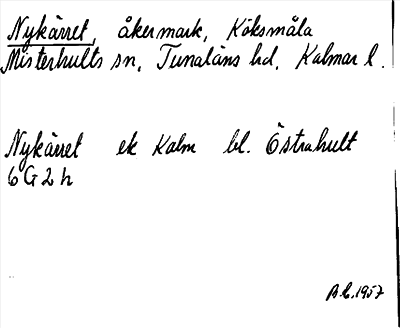 Nykärret, åkermark, Köksmåla
Misterhults sn, Tunaläns hd, Kalmar l.
Nykärret ek Kalm bl. Östrahult
6 G 2 h
B.C. 1957